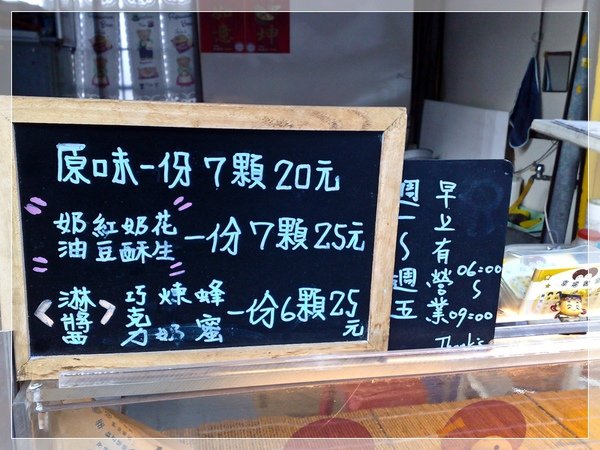 如意
乾坤
原味一份7顆20元
奶油 紅豆 奶酥 花生 一份7顆25元
<淋醬> 巧克力 煉奶 蜂蜜 一份6顆25元
週一～週五
早上有營業
06:00～09:00
Thanks